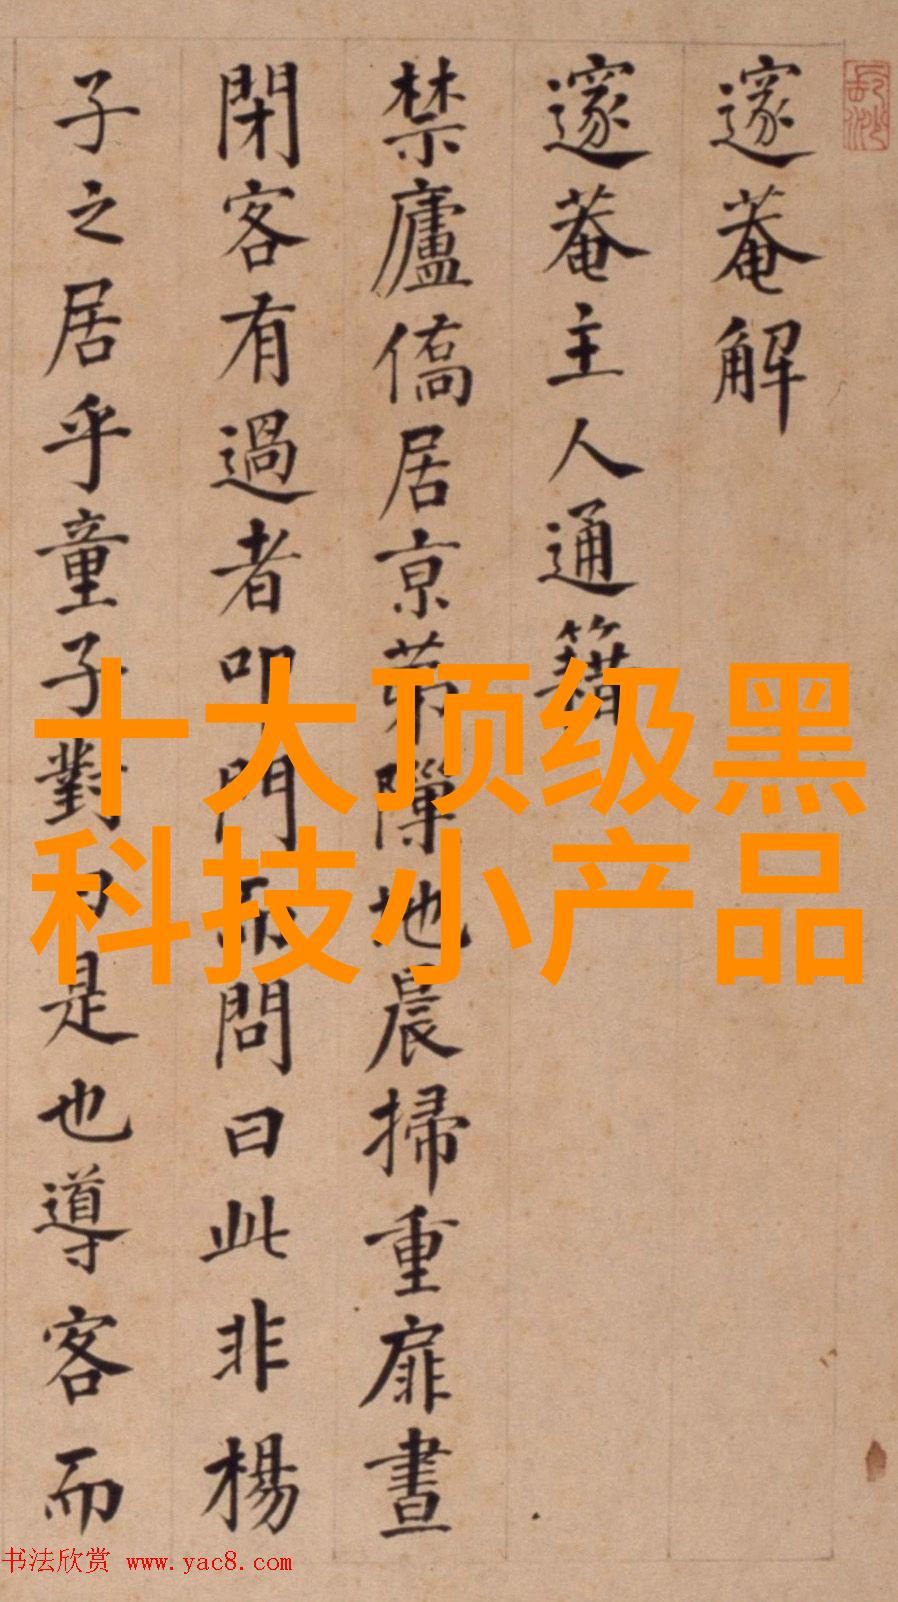 邃菴解
邃菴主人通籍
禁廬僑居京苐隟地晨掃重扉晝
閉客有過者叩門而問曰此非楊
子之居乎童子對曰是也導客而
十大顶级黑
科技小产品
书法欣赏 www.yac8.com